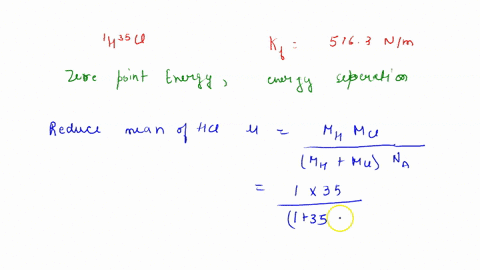 ¹H³⁵Cl K_f = 516.3 N/m
Zero point Energy, energy seperation
Reduce mean of HCl μ = M_H M_Cl / (M_H + M_Cl) N_A
= 1 x 35 / (1+35